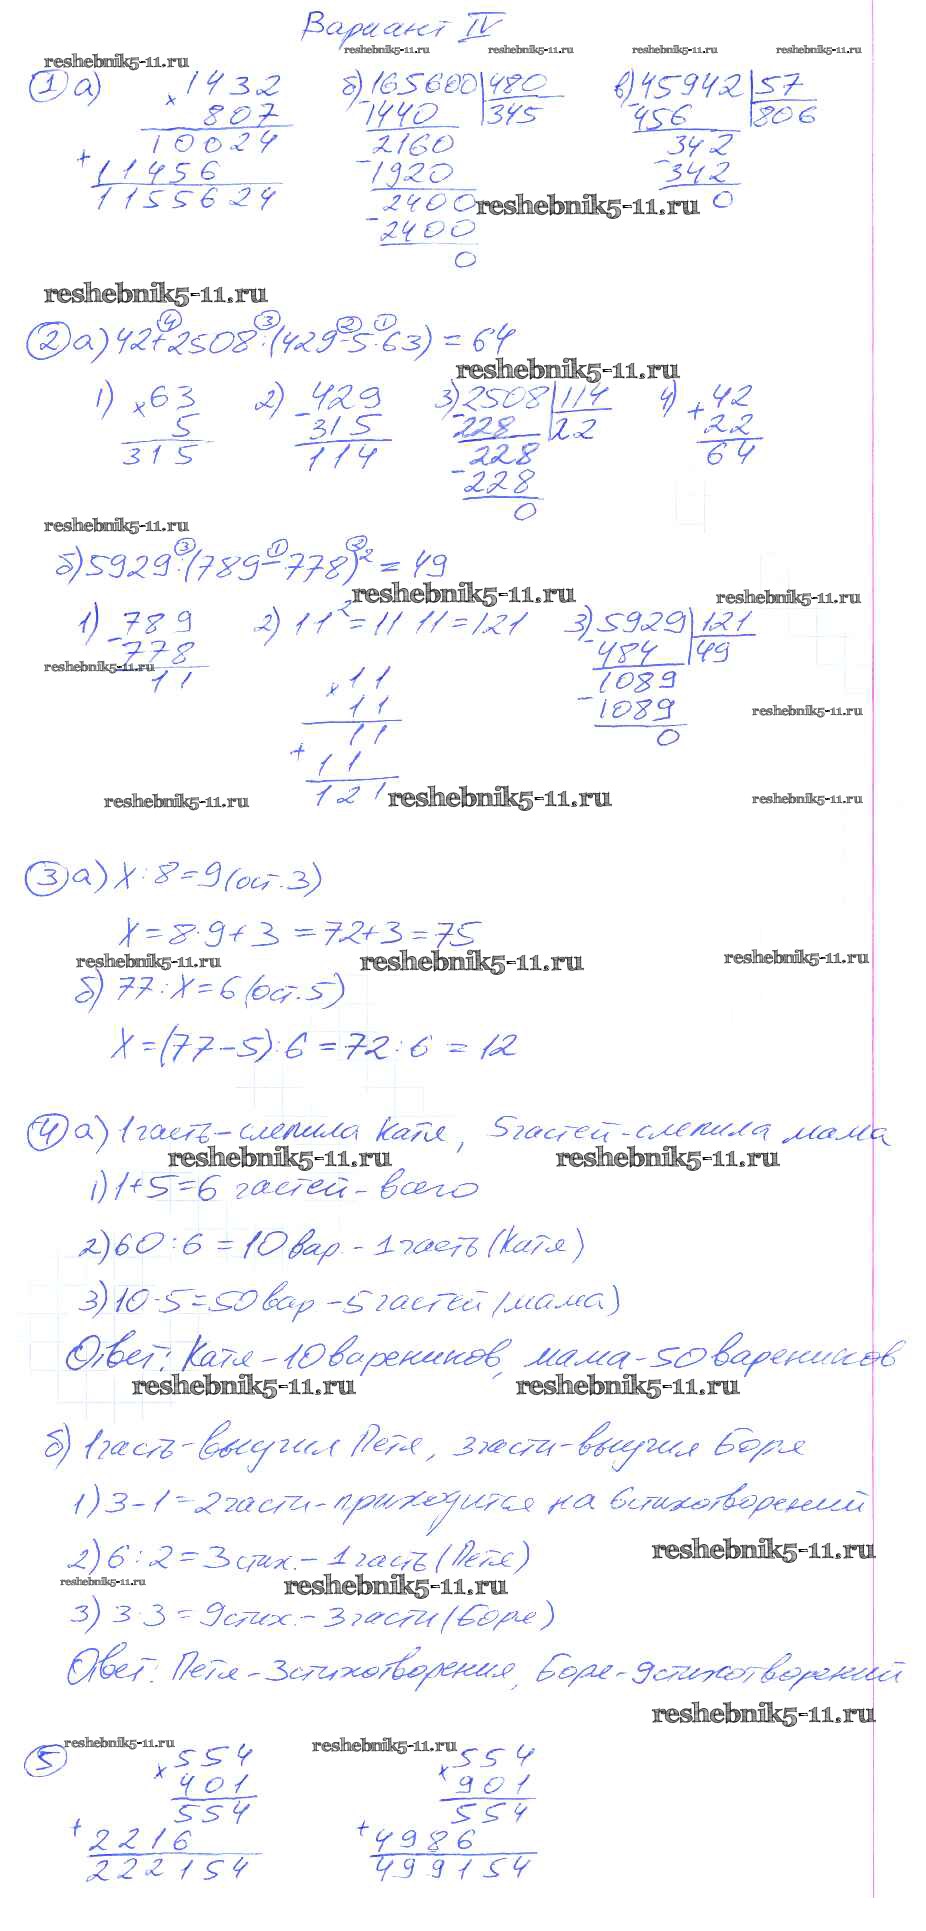 Вариант IV
reshebnik5-11.ru reshebnik5-11.ru reshebnik5-11.ru reshebnik5-11.ru reshebnik5-11.ru
1 а) 1432 б) 165600 480 в) 45942 57
× 807 - 1440 345 - 456 806
10024 2160 342
+ 11456 - 1920 - 342
1155624 2400 0
reshebnik5-11.ru
- 2400
0
reshebnik5-11.ru
4 3 2 1
2 а) 42+2508:(429-5·63)=64
reshebnik5-11.ru
1) × 63 2) - 429 3) 2508 114 4) + 42
5 315 - 228 22 22
315 114 228 64
- 228
0
reshebnik5-11.ru
3 1 2
б) 5929:(789-778)²=49
reshebnik5-11.ru reshebnik5-11.ru
1) - 789 2) 11²=11·11=121 3) 5929 121
778 - 484 49
reshebnik5-11.ru
11 × 11 1089
11 - 1089
reshebnik5-11.ru
11 0
+ 11
121
reshebnik5-11.ru reshebnik5-11.ru reshebnik5-11.ru
3 а) х:8=9(ост.3)
х=8·9+3=72+3=75
reshebnik5-11.ru reshebnik5-11.ru reshebnik5-11.ru
б) 77:х=6(ост.5)
х=(77-5):6=72:6=12
4 а) 1часть-слепила Катя, 5частей-слепила мама
reshebnik5-11.ru reshebnik5-11.ru
1) 1+5=6 частей-всего
2) 60:6=10вар.-1часть(Катя)
3) 10·5=50вар-5частей(мама)
Ответ: Катя-10вареников, мама-50вареников
reshebnik5-11.ru reshebnik5-11.ru
б) 1часть-выучил Петя, 3части-выучил Боря
1) 3-1=2части-приходится на 6стихотворений
2) 6:2=3стих.-1часть(Петя)
reshebnik5-11.ru
reshebnik5-11.ru reshebnik5-11.ru
3) 3·3=9стих.-3части(Боря)
Ответ: Петя-3стихотворения, Боря-9стихотворений
reshebnik5-11.ru
reshebnik5-11.ru reshebnik5-11.ru
5 × 554 × 554
401 901
554 554
+ 2216 + 4986
222154 499154